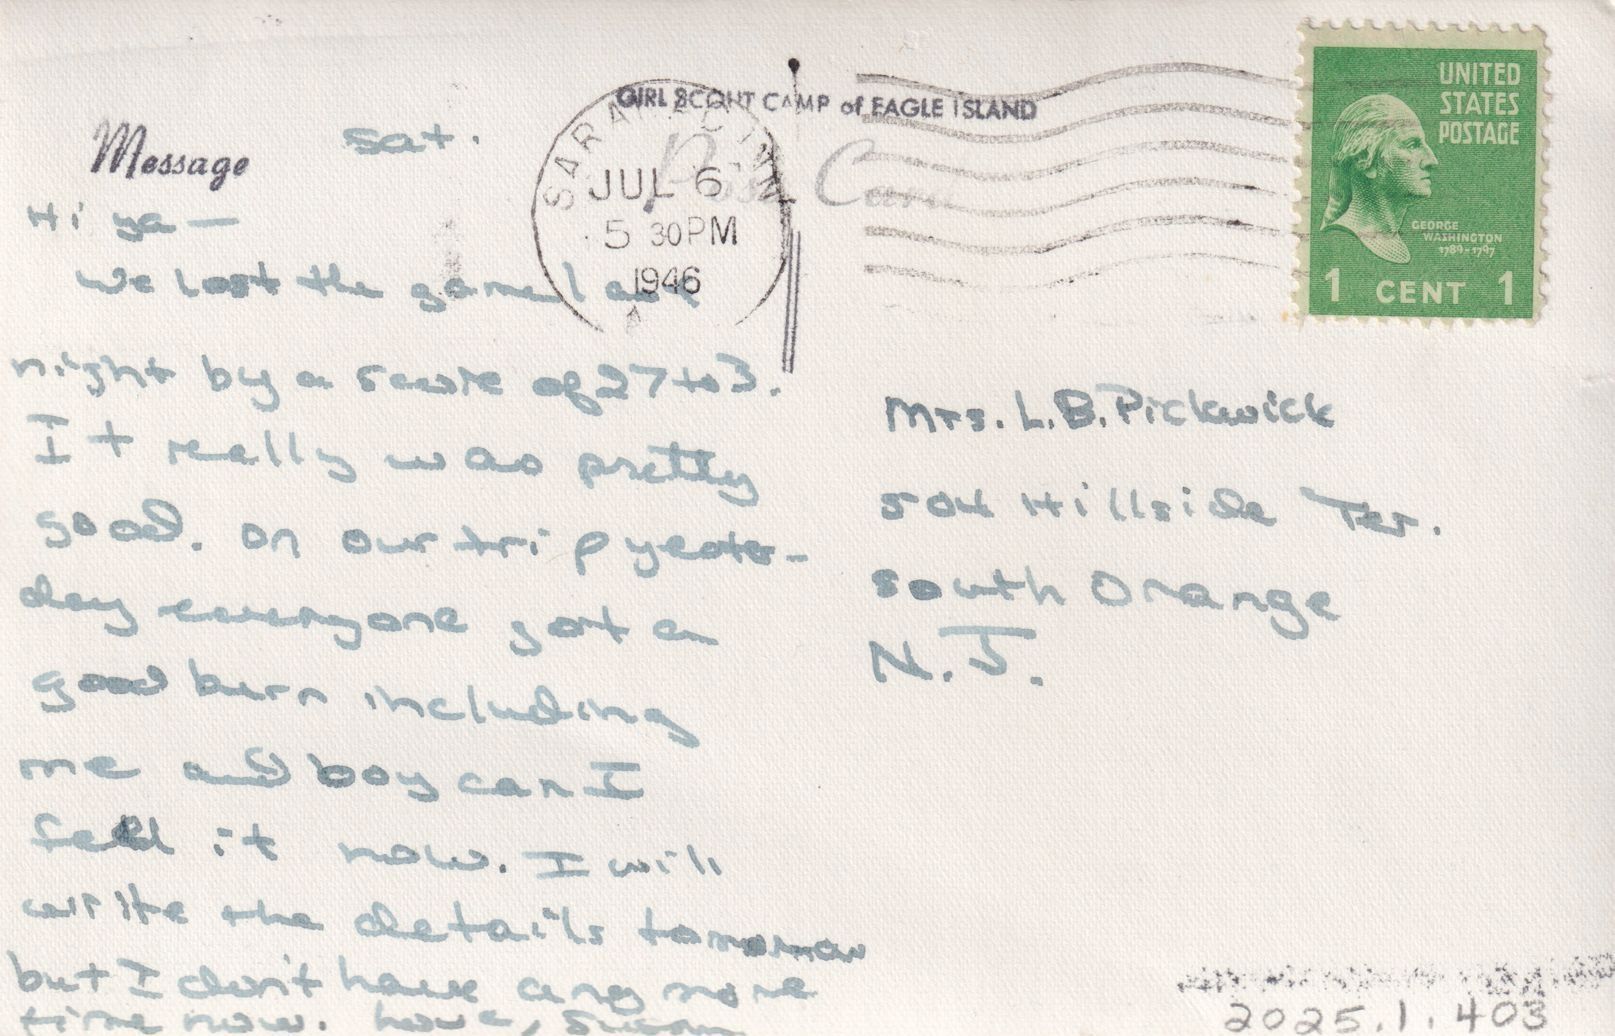 GIRL SCOUT CAMP of EAGLE ISLAND
Post Card
SARANAC INN
JUL 6
5 30 PM
1946
UNITED
STATES
POSTAGE
GEORGE
WASHINGTON
1789-1797
1 CENT 1
Message
Sat.
Hi ya —
We lost the game last
night by a score of 27 to 3.
It really was pretty
good. On our trip yester-
day everyone got a
good burn including
me and boy can I
feel it now. I will
write the details tomorrow
but I don't have any more
time now. Love, Susan
Mrs. L. B. Pickwick
504 Hillside Ter.
South Orange
N.J.
2025.1.403